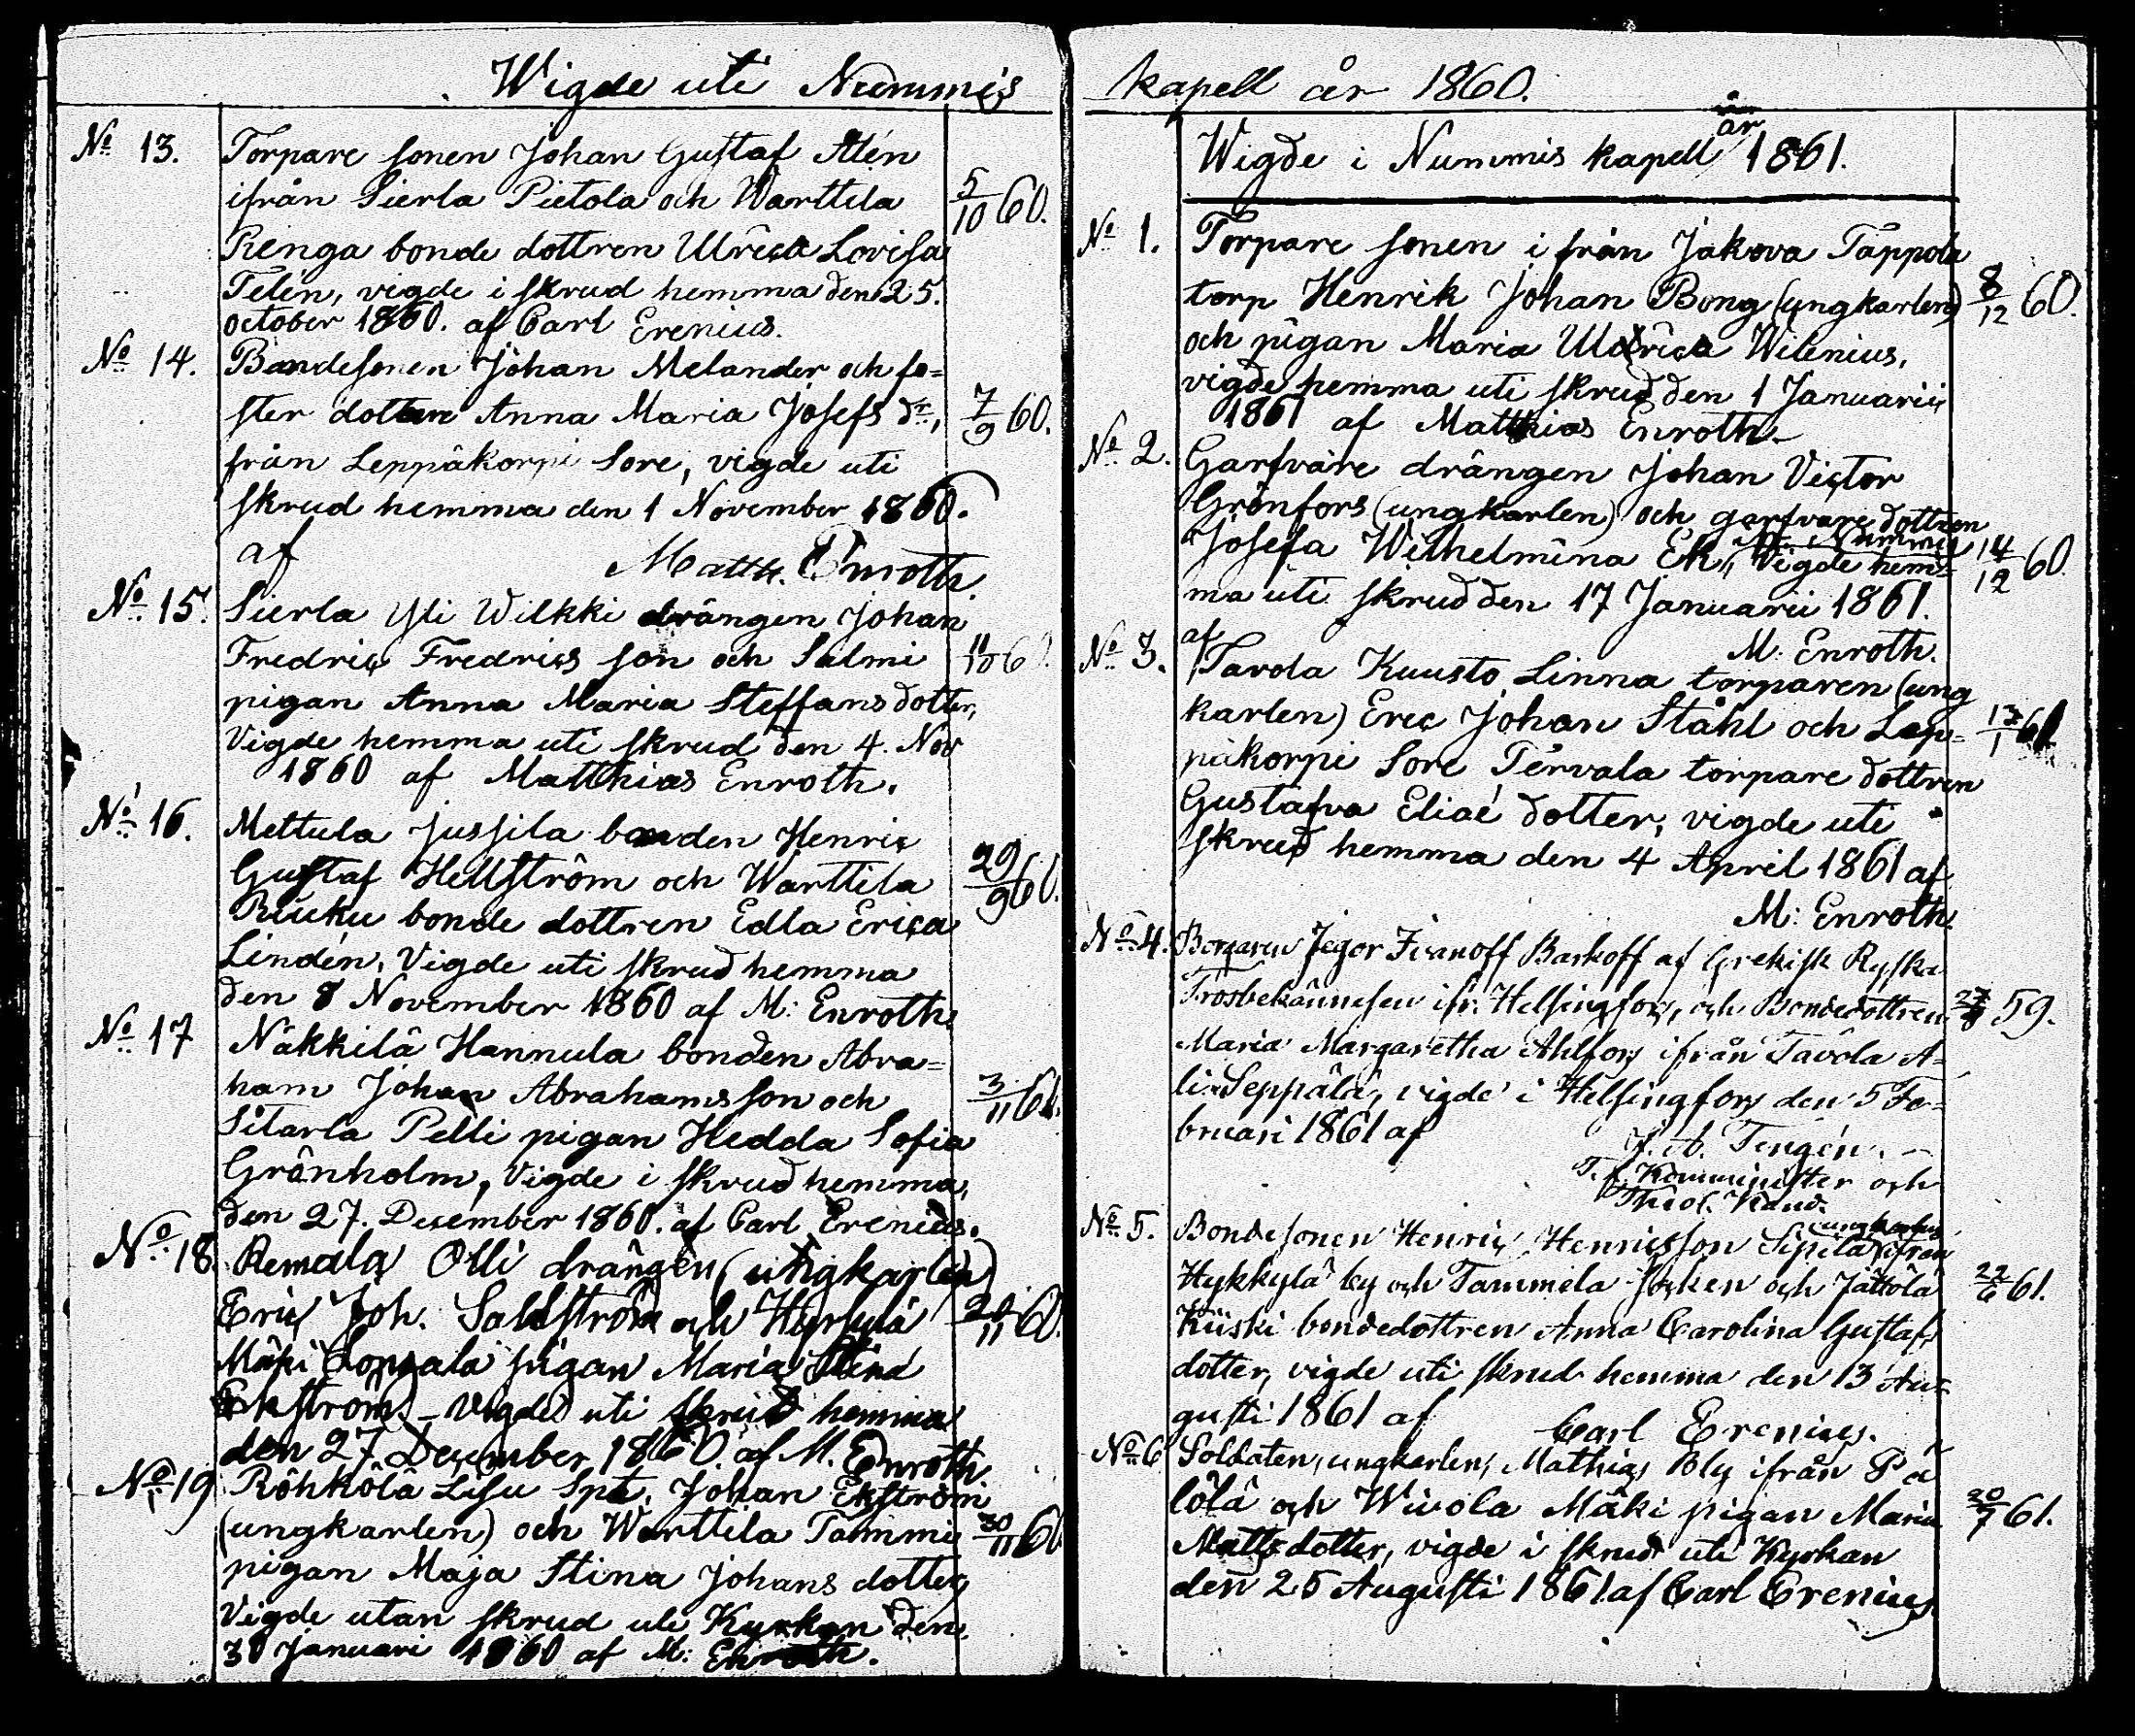 Wigde uti Nummis
№ 13. Torpare sonen Johan Gustaf Alén
ifrån Sierla Pietola och Warttila 5/10 60.
Renga bonde dottren Ulrica Lovisa
Telén, vigde i skrud hemma den 25.
october 1860. af Carl Erenius.
№ 14. Bondesonen Johan Melander och fo=
ster dottren Anna Maria Josefs dr, 7/9 60.
från Leppäkorpi Sore, vigde uti
skrud hemma den 1 November 1860.
af Matth. Enroth.
№ 15. Sierla Yli Wilkki drängen Johan
Fredric Fredrics son och Salmi
pigan Anna Maria Steffans dotter,
Vigde hemma uti skrud den 4. Nov
1860 af Matthias Enroth.
№ 16. Mettula Jussila bonden Henric
Gustaf Hellström och Warttila 29/9 60.
Riuku bonde dottren Edla Erica
Lindén, Vigde uti skrud hemma
den 8 November 1860 af M: Enroth.
№ 17 Näkkilä Hannula bonden Abra=
ham Johan Abrahamsson och 3/11 60.
Sitarla Pelli pigan Hedda Sofia
Grönholm, Vigde i skrud hemma,
den 27. December 1860. af Carl Erenius.
№ 18. Remala Olli drängen (ungkarlen)
Eric Joh. Sahlström och Hyrsylä
Mäki pigan Maria Stina
Ekström, – Vigde uti skrud hemma
den 27 December 1860. af M. Enroth
№ 19 Röhkölä Lisu Spt. Johan Ekström
(ungkarlen) och Warttila Tammi 30/11 60
pigan Maja Stina Johans dotter,
Vigde utan skrud uti Kyrkan den
30 Januari 1860 af M: Enroth.
kapell år 1860.
Wigde i Nummis kapell år 1861.
№ 1. Torpare sonen i från Jakova Täppola
torp Henrik Johan Bong (ungkarlen) 8/12 60.
och pigan Maria Ulrica Wilenius,
vigde hemma uti skrud den 1 Januarii
1861 af Matthias Enroth.
№ 2. Garfvare drängen Johan Victor
Grönfors (ungkarlen) och garfvare dottren
Josefa Wilhelmina Ek, Vigde hem= 14/12 60
ma uti skrud den 17 Januarii 1861.
af M: Enroth.
№ 3. Tavola Kuusto Linna torparen (ung
karlen) Eric Johan Ståhl och Lep= 13/1 61
päkorpi Sore Tervala torpare dottren
Gustafva Eliaé dotter, vigde uti
skrud hemma den 4 April 1861 af
M: Enroth.
№ 4. Borgaren Jegor Ivanoff Barkoff af Grekisk Ryska
Trosbekännelsen ifr. Helsingfors, och Bondedottren 59.
Maria Margaretha Ahlfors ifrån Tavola A=
li-Seppälä, vigde i Helsingfors den 5 Fe=
bruari 1861 af
J. A. Tengén. –
T. f. Komminister och
Theol. Kand.
№ 5. Bondesonen Henric Henricsson Sipilä (ungkarlen) ifrån
Hykkylä by och Tammela socken och Jättölä 22/6 61.
Kiiski bondedottren Anna Carolina Gustafs
dotter, vigde uti skrud hemma den 13 Au=
gusti 1861 af Carl Erenius.
№ 6 Soldaten, ungkarlen, Mathias Bly ifrån Pä
lölä och Wivola Mäki pigan Maria 20/7 61.
Matts dotter, vigde i skrud uti Kyrkan
den 25 Augusti 1861 af Carl Erenius.